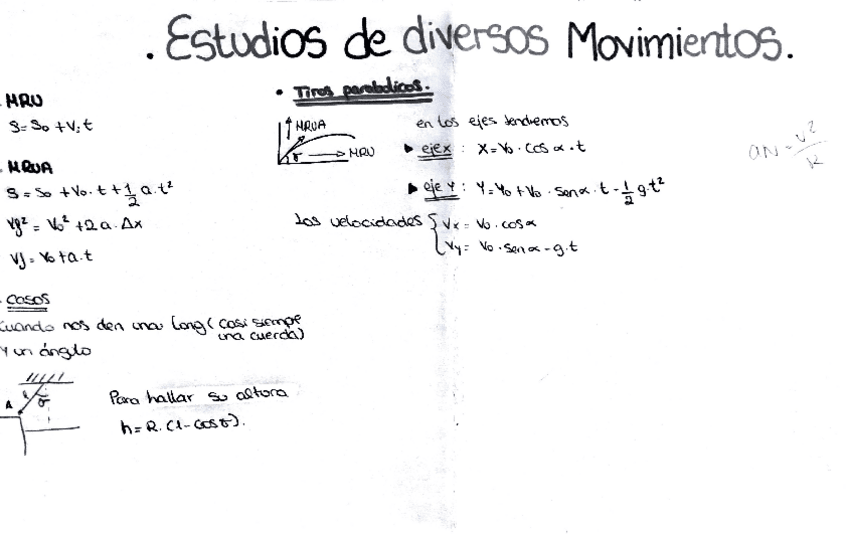 . Estudios de diversos Movimientos.
. MRU
S = S₀ + V.t
. MRUA
S = S₀ + V₀·t + 1/2 a.t²
Vf² = V₀² + 2a·Δx
Vf = V₀ + a.t
. casos
Cuando nos den una long (casi siempe
una cuerda)
Y un ángulo
A
Para hallar su altura
h = R.(1-cosσ).
• Tiros parabolicos.
MRUA
MRU
en los ejes tendremos
▶ eje x : X = V₀ · cos α · t
▶ eje Y : Y = Y₀ + V₀ · sen α · t - 1/2 g t²
Las velocidades { Vx = V₀ · cos α
Vy = V₀ · sen α - g.t
aN = v²/R